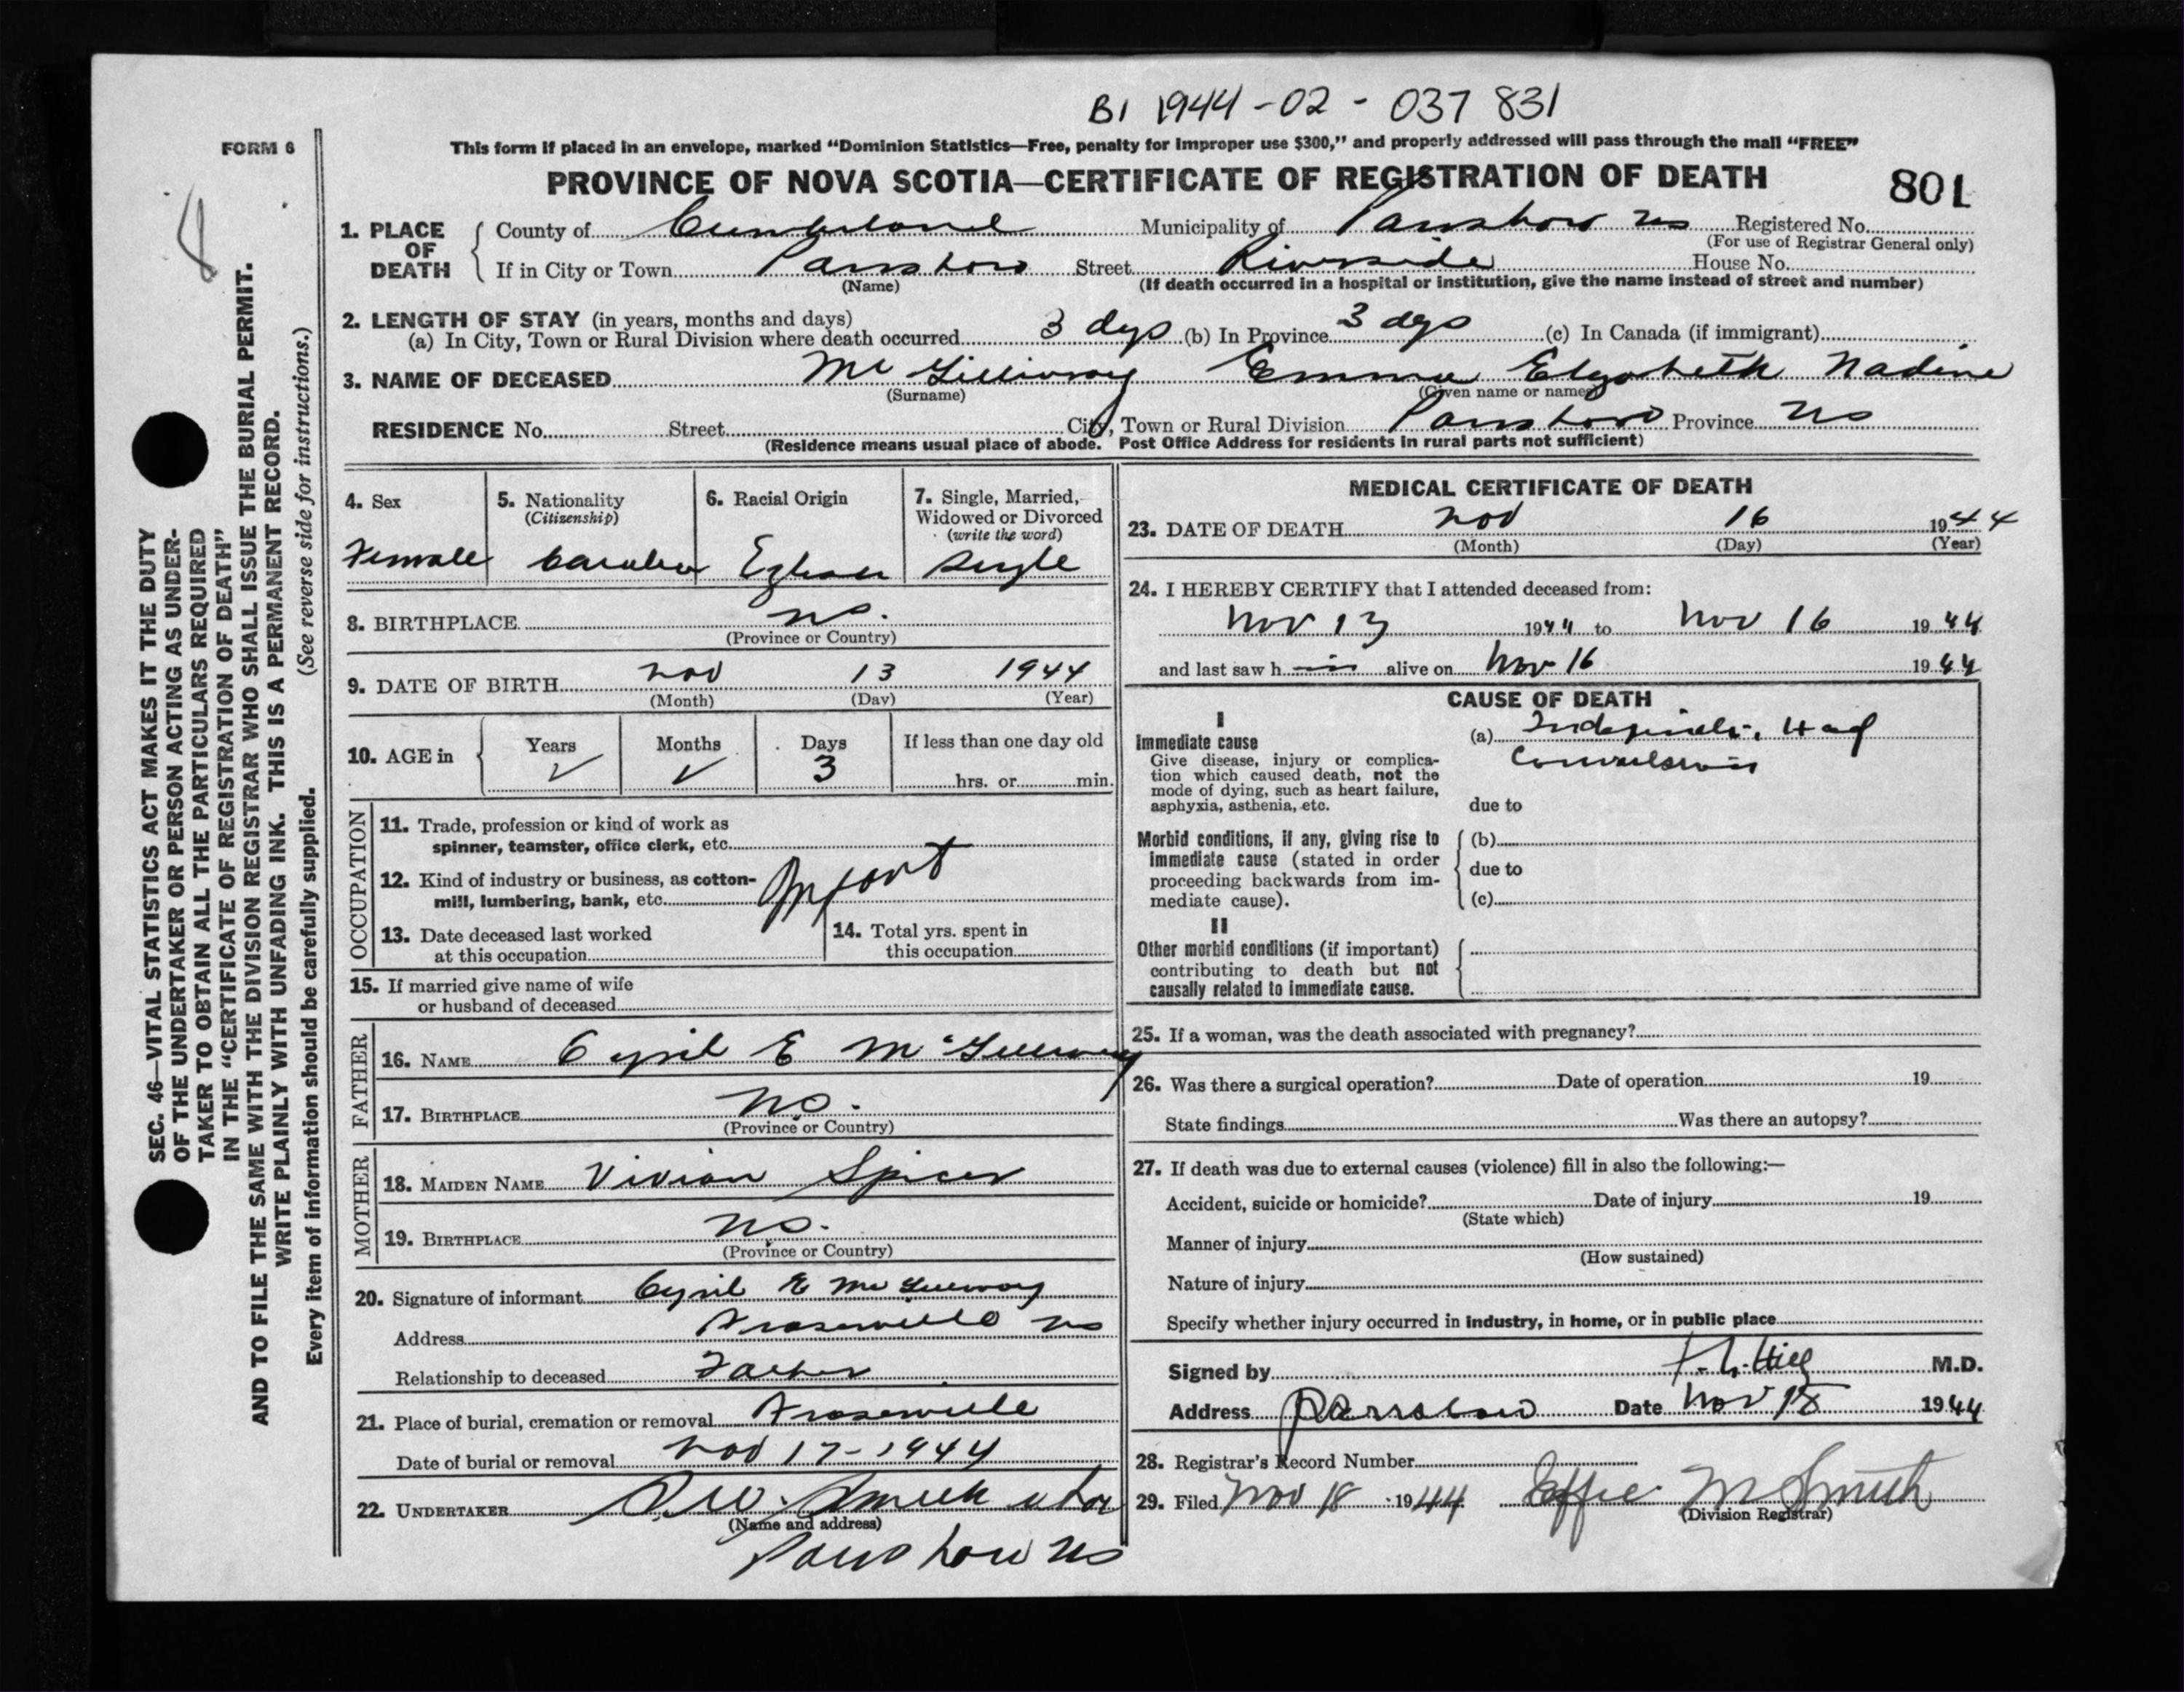 B1 1944-02-037 831
FORM 6
This form if placed in an envelope, marked “Dominion Statistics—Free, penalty for improper use $300,” and properly addressed will pass through the mail “FREE”
PROVINCE OF NOVA SCOTIA—CERTIFICATE OF REGISTRATION OF DEATH
801
1. PLACE OF DEATH
County of Cumberland Municipality of Parrsboro NS Registered No.
(For use of Registrar General only)
If in City or Town Parrsboro Street Riverside House No.
(Name) (If death occurred in a hospital or institution, give the name instead of street and number)
2. LENGTH OF STAY (in years, months and days)
(a) In City, Town or Rural Division where death occurred 3 dys (b) In Province 3 dys (c) In Canada (if immigrant)
3. NAME OF DECEASED Emma Elizabeth Nadine
(Surname) (Given name or names)
RESIDENCE No. Street City, Town or Rural Division Parrsboro Province NS
(Residence means usual place of abode. Post Office Address for residents in rural parts not sufficient)
4. Sex 5. Nationality 6. Racial Origin 7. Single, Married,
(Citizenship) Widowed or Divorced
(write the word)
Female Single
8. BIRTHPLACE NS.
(Province or Country)
9. DATE OF BIRTH Nov 13 1944
(Month) (Day) (Year)
10. AGE in Years Months Days If less than one day old
✓ ✓ 3 hrs. or min.
OCCUPATION
11. Trade, profession or kind of work as
spinner, teamster, office clerk, etc.
12. Kind of industry or business, as cotton-
mill, lumbering, bank, etc. Infant
13. Date deceased last worked 14. Total yrs. spent in
at this occupation this occupation
15. If married give name of wife
or husband of deceased
FATHER
16. NAME Cyril E
17. BIRTHPLACE NS.
(Province or Country)
MOTHER
18. MAIDEN NAME Vivian Spicer
19. BIRTHPLACE NS.
(Province or Country)
20. Signature of informant Cyril E
Address Fraserville NS
Relationship to deceased Father
21. Place of burial, cremation or removal Fraserville
Date of burial or removal Nov 17-1944
22. UNDERTAKER Smith
(Name and address)
Parrsboro NS
MEDICAL CERTIFICATE OF DEATH
23. DATE OF DEATH Nov 16 1944
(Month) (Day) (Year)
24. I HEREBY CERTIFY that I attended deceased from:
Nov 13 1944 to Nov 16 1944
and last saw h alive on Nov 16 1944
CAUSE OF DEATH
I
Immediate cause (a) Indefinite. Had
Give disease, injury or complica- Convulsions
tion which caused death, not the
mode of dying, such as heart failure,
asphyxia, asthenia, etc. due to
Morbid conditions, if any, giving rise to (b)
immediate cause (stated in order
proceeding backwards from im- due to
mediate cause). (c)
II
Other morbid conditions (if important)
contributing to death but not
causally related to immediate cause.
25. If a woman, was the death associated with pregnancy?
26. Was there a surgical operation? Date of operation 19
State findings Was there an autopsy?
27. If death was due to external causes (violence) fill in also the following:—
Accident, suicide or homicide? Date of injury 19
(State which)
Manner of injury
(How sustained)
Nature of injury
Specify whether injury occurred in industry, in home, or in public place
Signed by Hill M.D.
Address Parrsboro Date Nov 18 1944
28. Registrar's Record Number
29. Filed Nov 18 1944 Effie M Smith
(Division Registrar)
SEC. 46—VITAL STATISTICS ACT MAKES IT THE DUTY
OF THE UNDERTAKER OR PERSON ACTING AS UNDER-
TAKER TO OBTAIN ALL THE PARTICULARS REQUIRED
IN THE “CERTIFICATE OF REGISTRATION OF DEATH”
AND TO FILE THE SAME WITH THE DIVISION REGISTRAR WHO SHALL ISSUE THE BURIAL PERMIT.
WRITE PLAINLY WITH UNFADING INK. THIS IS A PERMANENT RECORD.
Every item of information should be carefully supplied. (See reverse side for instructions.)